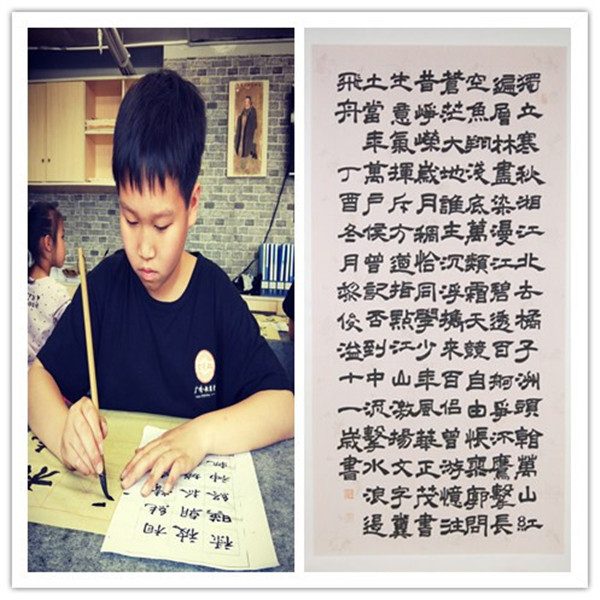 獨立寒秋湘江北去橘子洲頭看萬山紅
遍層林盡染漫江碧透百舸爭流鷹擊長
空魚翔淺底萬類霜天競自由悵寥廓問
蒼茫大地誰主沉浮攜來百侶曾游憶往
昔崢嶸歲月稠恰同學少年風華正茂書
生意氣揮斥方遒指點江山激揚文字糞
土當年萬戶侯曾記否到中流擊水浪遏
飛舟 丁酉冬月黎俊溢十一歲書